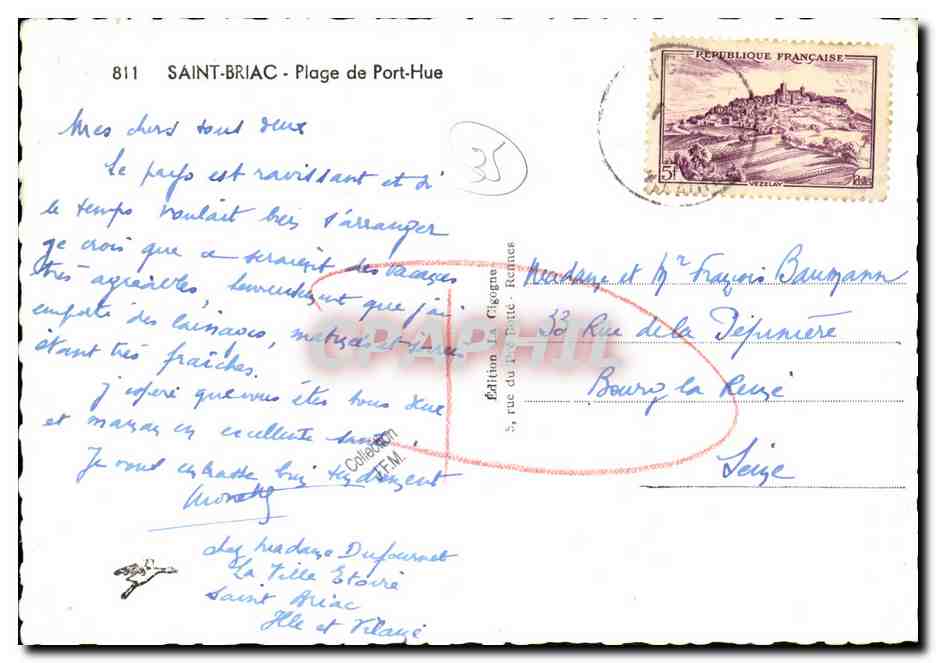 811 SAINT-BRIAC - Plage de Port-Hue
RÉPUBLIQUE FRANÇAISE
5f
VÉZELAY
Postes
35
Mes chers tout deux
Le pays est ravissant et si
le temps voulait bien s'arranger
je crois que ce seraient des vacances
très agréables, heureusement que j'ai
emporté des lainages, matinées et soirées
étant très fraîches.
J'espère que vous êtes tous deux
et maman en excellente santé.
Je vous embrasse bien tendrement
chez Madame Dufournet
La Ville Etoire
Saint Briac
Ille et Vilaine
Édition La Cigogne
5, rue du Pré Botté - Rennes
Madame et Mr François Baumann
33 Rue de la Pépinière
Bourg la Reine
Seine
CPAPHIL
Collection
J.F.M.